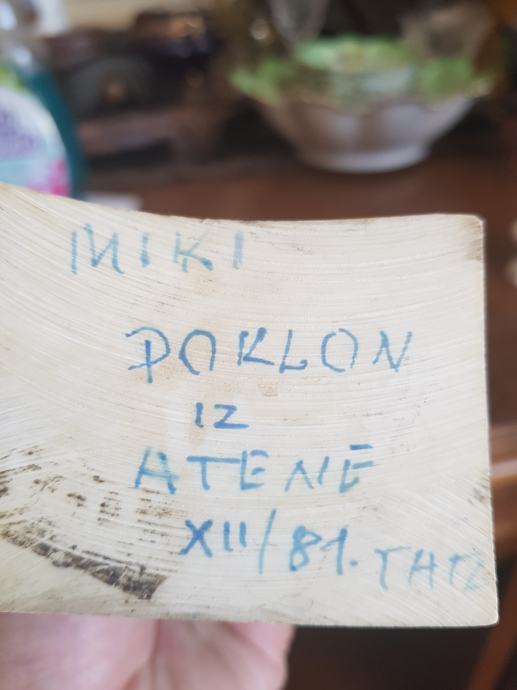 MIKI
POKLON
IZ
ATENE
XII/81.